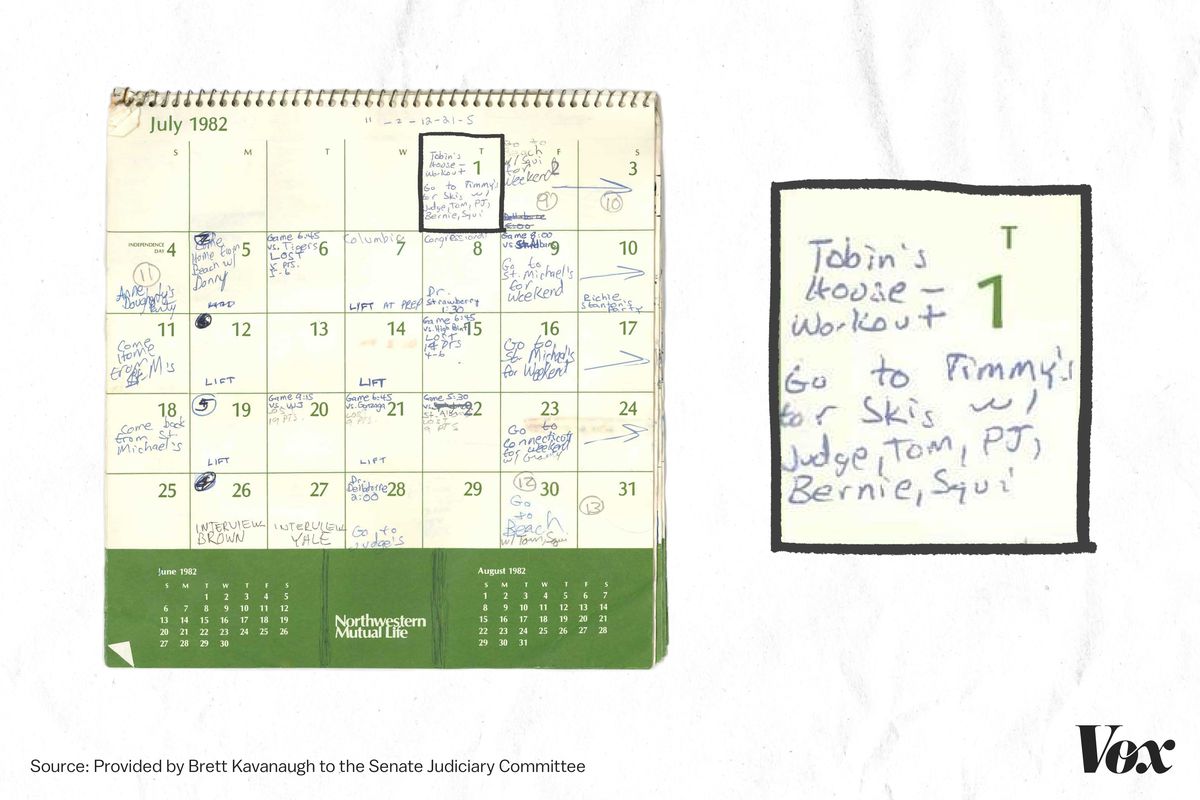 July 1982
S M T W T F S
Tobin's
House –
Workout
1
Go to Timmy's
for Skis w/
Judge, Tom, PJ,
Bernie, Squi
Go to
w/ Squi
for
Weekend
2
9
3
10
INDEPENDENCE
DAY 4
11
Party
5
Come
Home from
Beach w/
Donny
6
Game 6:45
vs. Tigers
LOST
5-6
7
LIFT AT PREP
8
Congressional
Dr.
Strawberry
1:30
9
Game 8:00
vs
Go to
St. Michael's
for
Weekend
10
Richie
Party
11
Come
Home
from
St. M's
12
LIFT
13
14
LIFT
15
Game 6:45
LOST
4-6
16
Go to
St. Michael's
for Weekend
17
18
Come back
from St.
Michael's
5
19
LIFT
20
Game 9:15
vs. WJ
19 PTS.
21
Game 6:45
vs. Gonzaga
LIFT
22
Game 5:30
23
Go to
Connecticut
for weekend
24
25
26
INTERVIEW
BROWN
27
INTERVIEW
YALE
28
Dr.
2:00
Go to
Judge's
29
12
30
Go
to
Beach
w/ Tom, Squi
31
13
June 1982
S M T W T F S
1 2 3 4 5
6 7 8 9 10 11 12
13 14 15 16 17 18 19
20 21 22 23 24 25 26
27 28 29 30
Northwestern
Mutual Life
August 1982
S M T W T F S
1 2 3 4 5 6 7
8 9 10 11 12 13 14
15 16 17 18 19 20 21
22 23 24 25 26 27 28
29 30 31
T
1
Tobin's
House –
Workout
Go to Timmy's
for Skis w/
Judge, Tom, PJ,
Bernie, Squi
Source: Provided by Brett Kavanaugh to the Senate Judiciary Committee
Vox